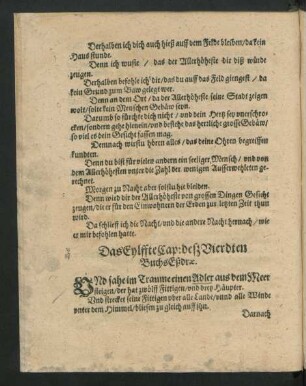 Derhalben ich dich auch hieß auff dem Felde bleiben/ da kein
Haus stunde.
Denn ich wuste / das der Allerhöheste dir diß würde
zeigen.
Derhalben befohle ich dir/das du auff das Feld giengest / da
kein Grund zum Baw gelegt wer.
Denn an dem Ort / da der Allerhöheste seine Stadt zeigen
wolt/ solte kein Menschen Gebäw seyn.
Darumb so fürchte dich nicht / und dein Hertz sey unerschro-
cken/sondern gehe hinein/und besiehe das herrliche grosse Gebäw/
so viel es dein Gesicht fassen mag.
Dennnach wirstu hören alles / das deine Ohren begreiffen
kundten.
Denn du bist für vielen andern ein seeliger Mensch / und von
dem Allerhöhesten unter die Zahl der wenigen Außerwehleten ge-
rechnet.
Morgen zu Nacht aber solstu hie bleiben.
Denn wird dir der Allerhöheste von grossen Dingen Gesicht
zeugen/die er für den Einwohnern der Erden zur letzten Zeit thun
wird.
Da schlieff ich die Nacht/ und die andere Nacht hernach / wie
er mir befohlen hatte.
Das Eylffte Cap: deß Vierdten
Buchs Eßdræ.
UNd sahe im Traume einen Adler aus dem Meer
steigen/ der hat zwölff Fittigen/ und drey Häupter.
Und strecket seine Fittigen über alle Lande/ und alle Winde
unter dem Himmel/ bliesen zu gleich auff ihn.
Darnach